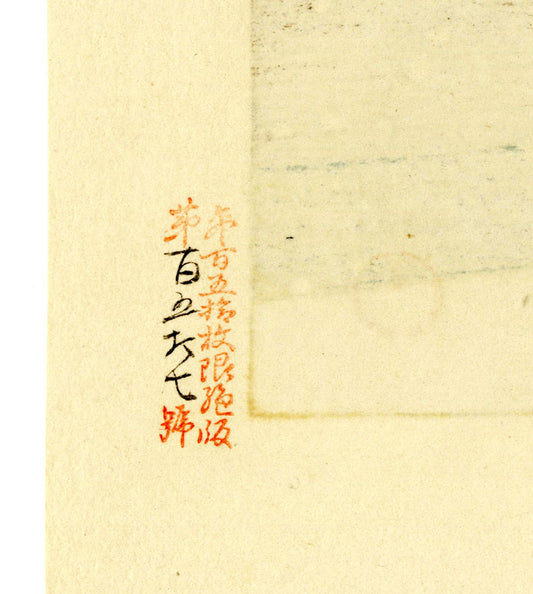 百五拾枚限絶版
第百五拾七號